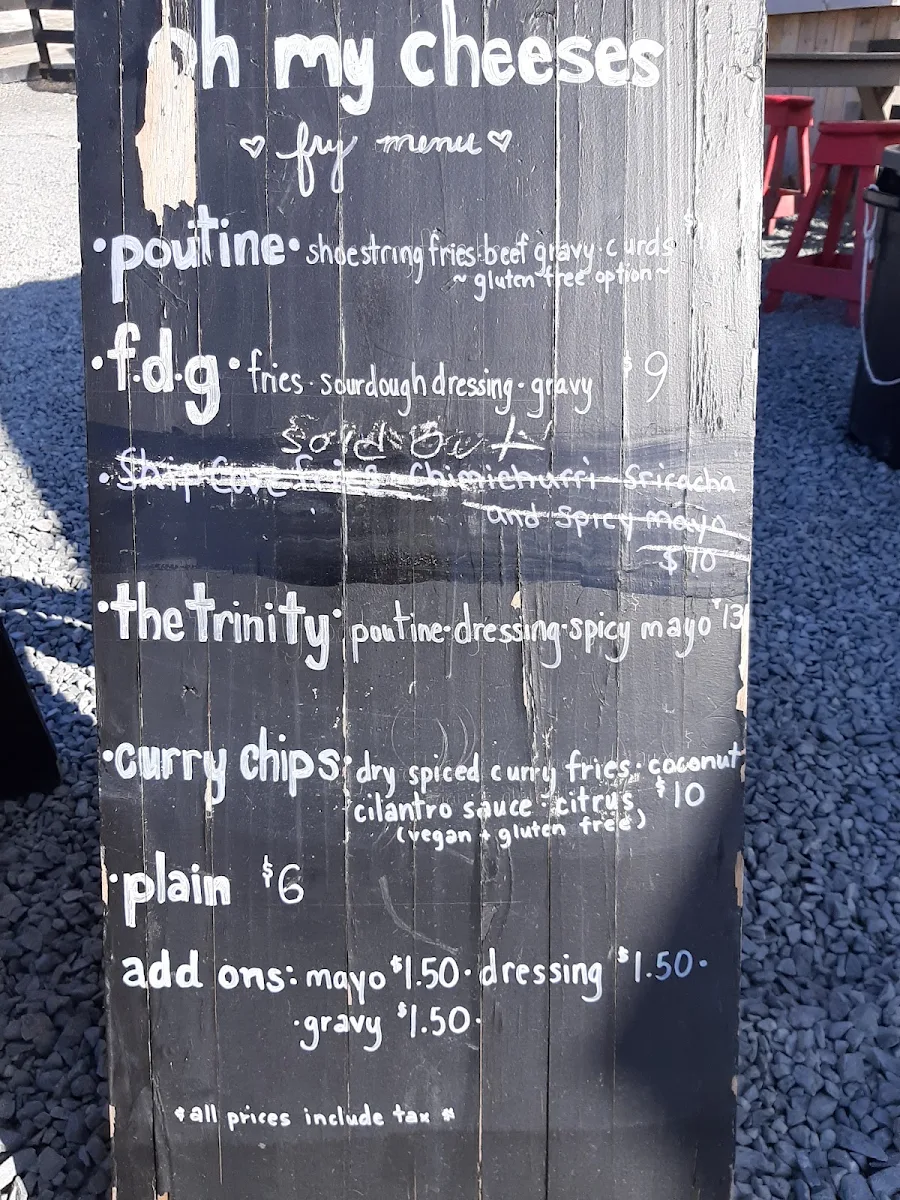 oh my cheeses
♡ fry menu ♡
• poutine • shoestring fries · beef gravy · curds
~ gluten free option ~
• f.d.g • fries · sourdough dressing · gravy $9
Sold Out
• Ship Cove fries Chimichurri Sriracha
and Spicy mayo
$10
• the trinity • poutine · dressing · spicy mayo $13
• curry chips : dry spiced curry fries · coconut
cilantro sauce · citrus $10
(vegan + gluten free)
• plain $6
add ons: mayo $1.50 · dressing $1.50 ·
· gravy $1.50 ·
* all prices include tax *